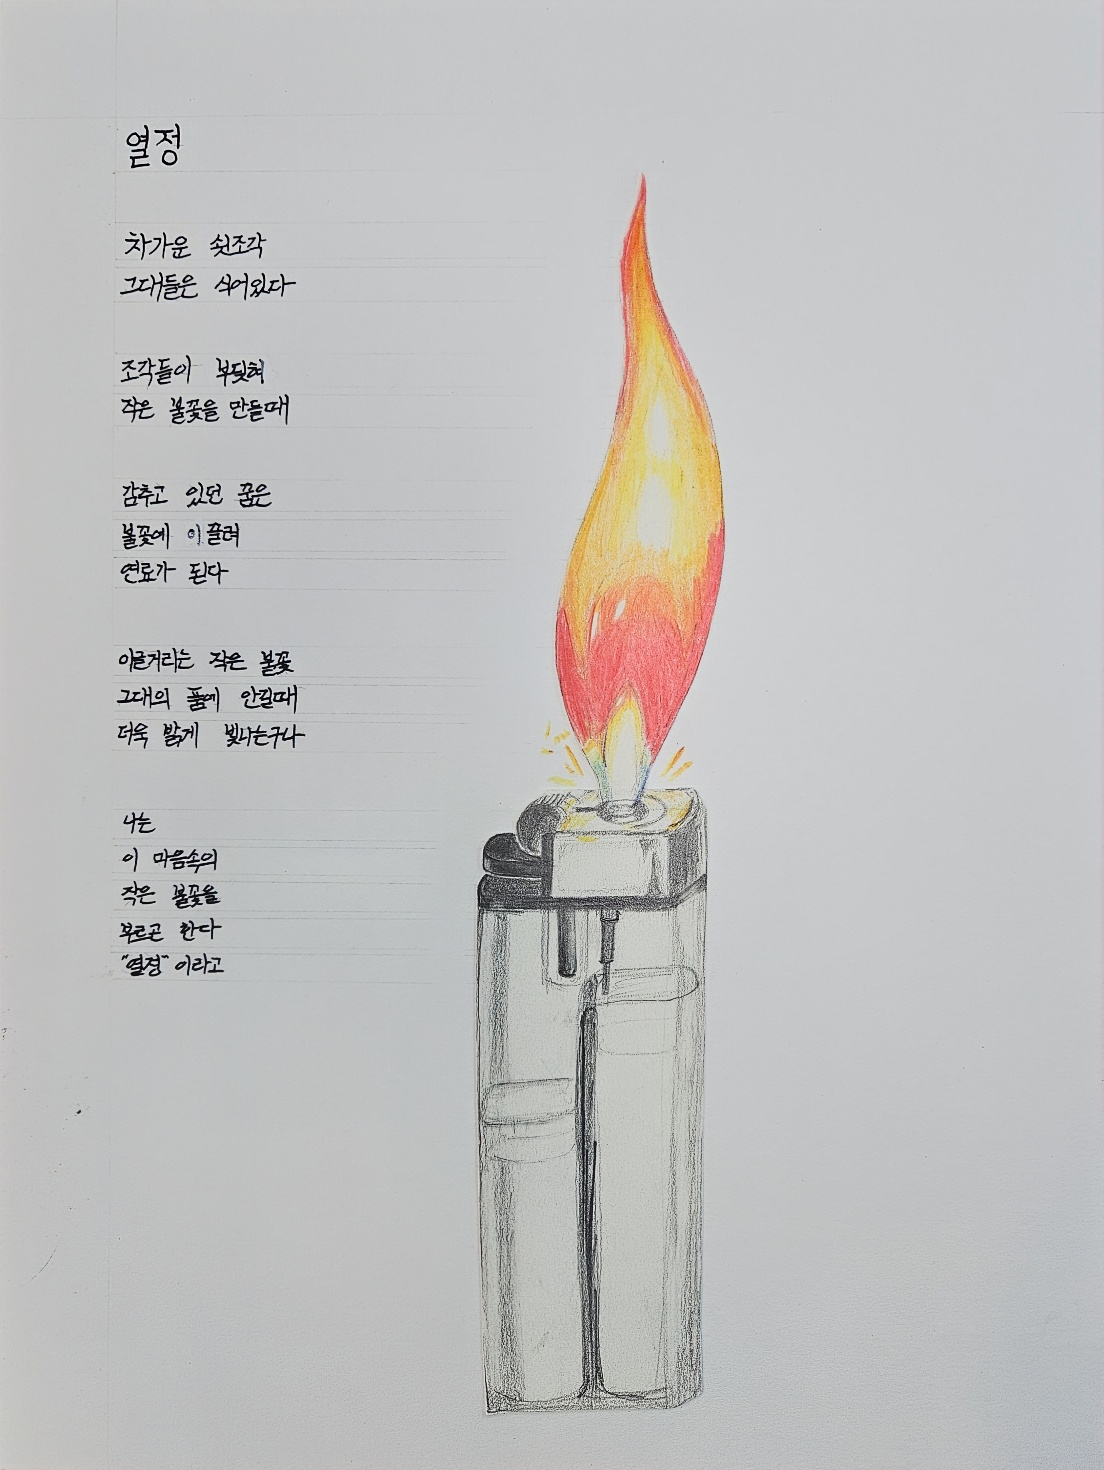 열정
차가운 쇳조각
그대들은 식어있다
조각들이 부딪혀
작은 불꽃을 만들때
감추고 있던 꿈은
불꽃에 이끌려
연료가 된다
이글거리는 작은 불꽃
그대의 품에 안길때
더욱 밝게 빛나는구나
나는
이 마음속의
작은 불꽃을
부르곤 한다
"열정"이라고